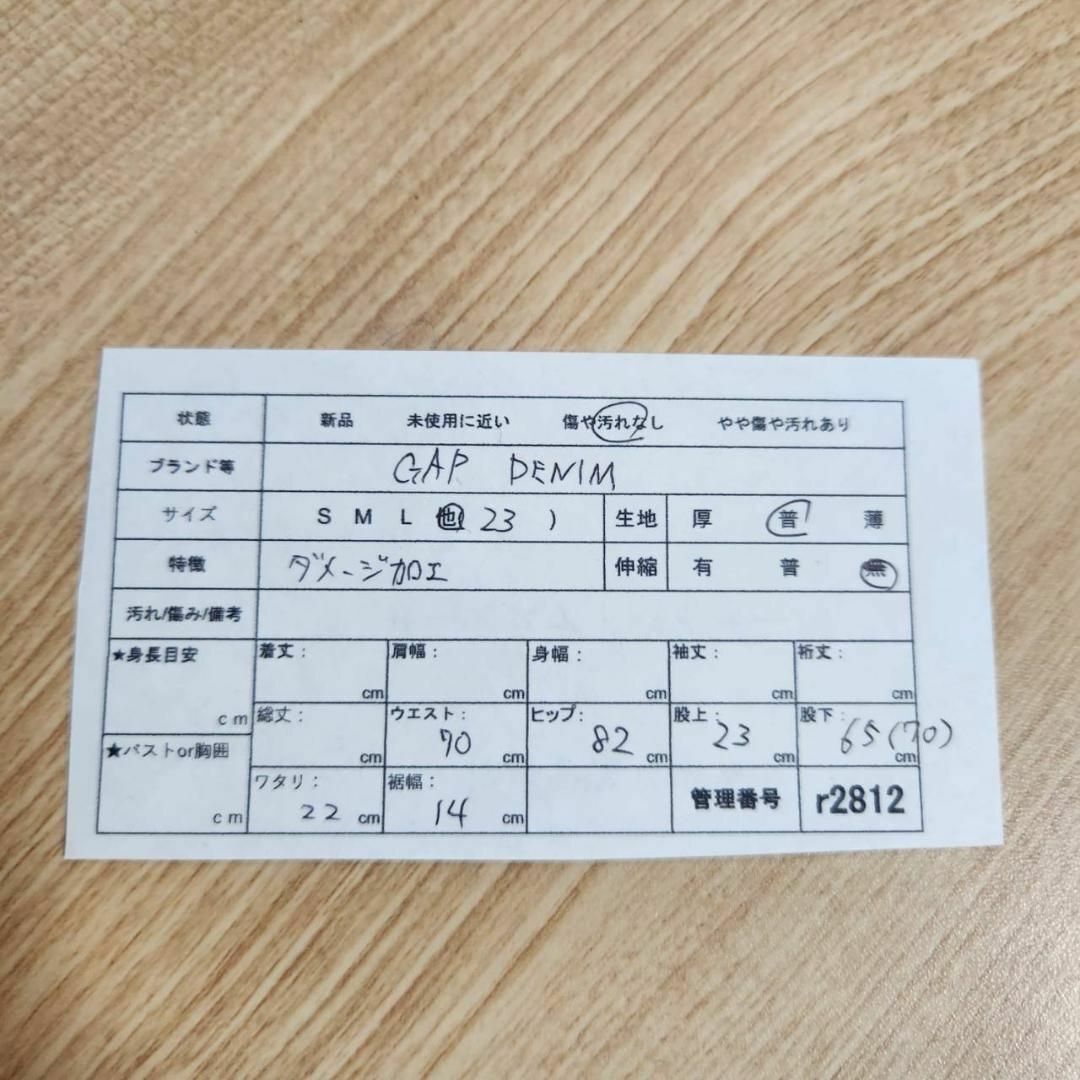 状態 新品 未使用に近い 傷や汚れなし やや傷や汚れあり
ブランド等 GAP DENIM
サイズ S M L 他 23 ) 生地 厚 普 薄
特徴 ダメージ加工 伸縮 有 普 無
汚れ/傷み/備考
★身長目安 cm 着丈: cm 肩幅: cm 身幅: cm 袖丈: cm 裄丈: cm
総丈: cm ウエスト: 70 cm ヒップ: 82 cm 股上: 23 cm 股下: 65(70) cm
★バストor胸囲 cm ワタリ: 22 cm 裾幅: 14 cm 管理番号 r2812